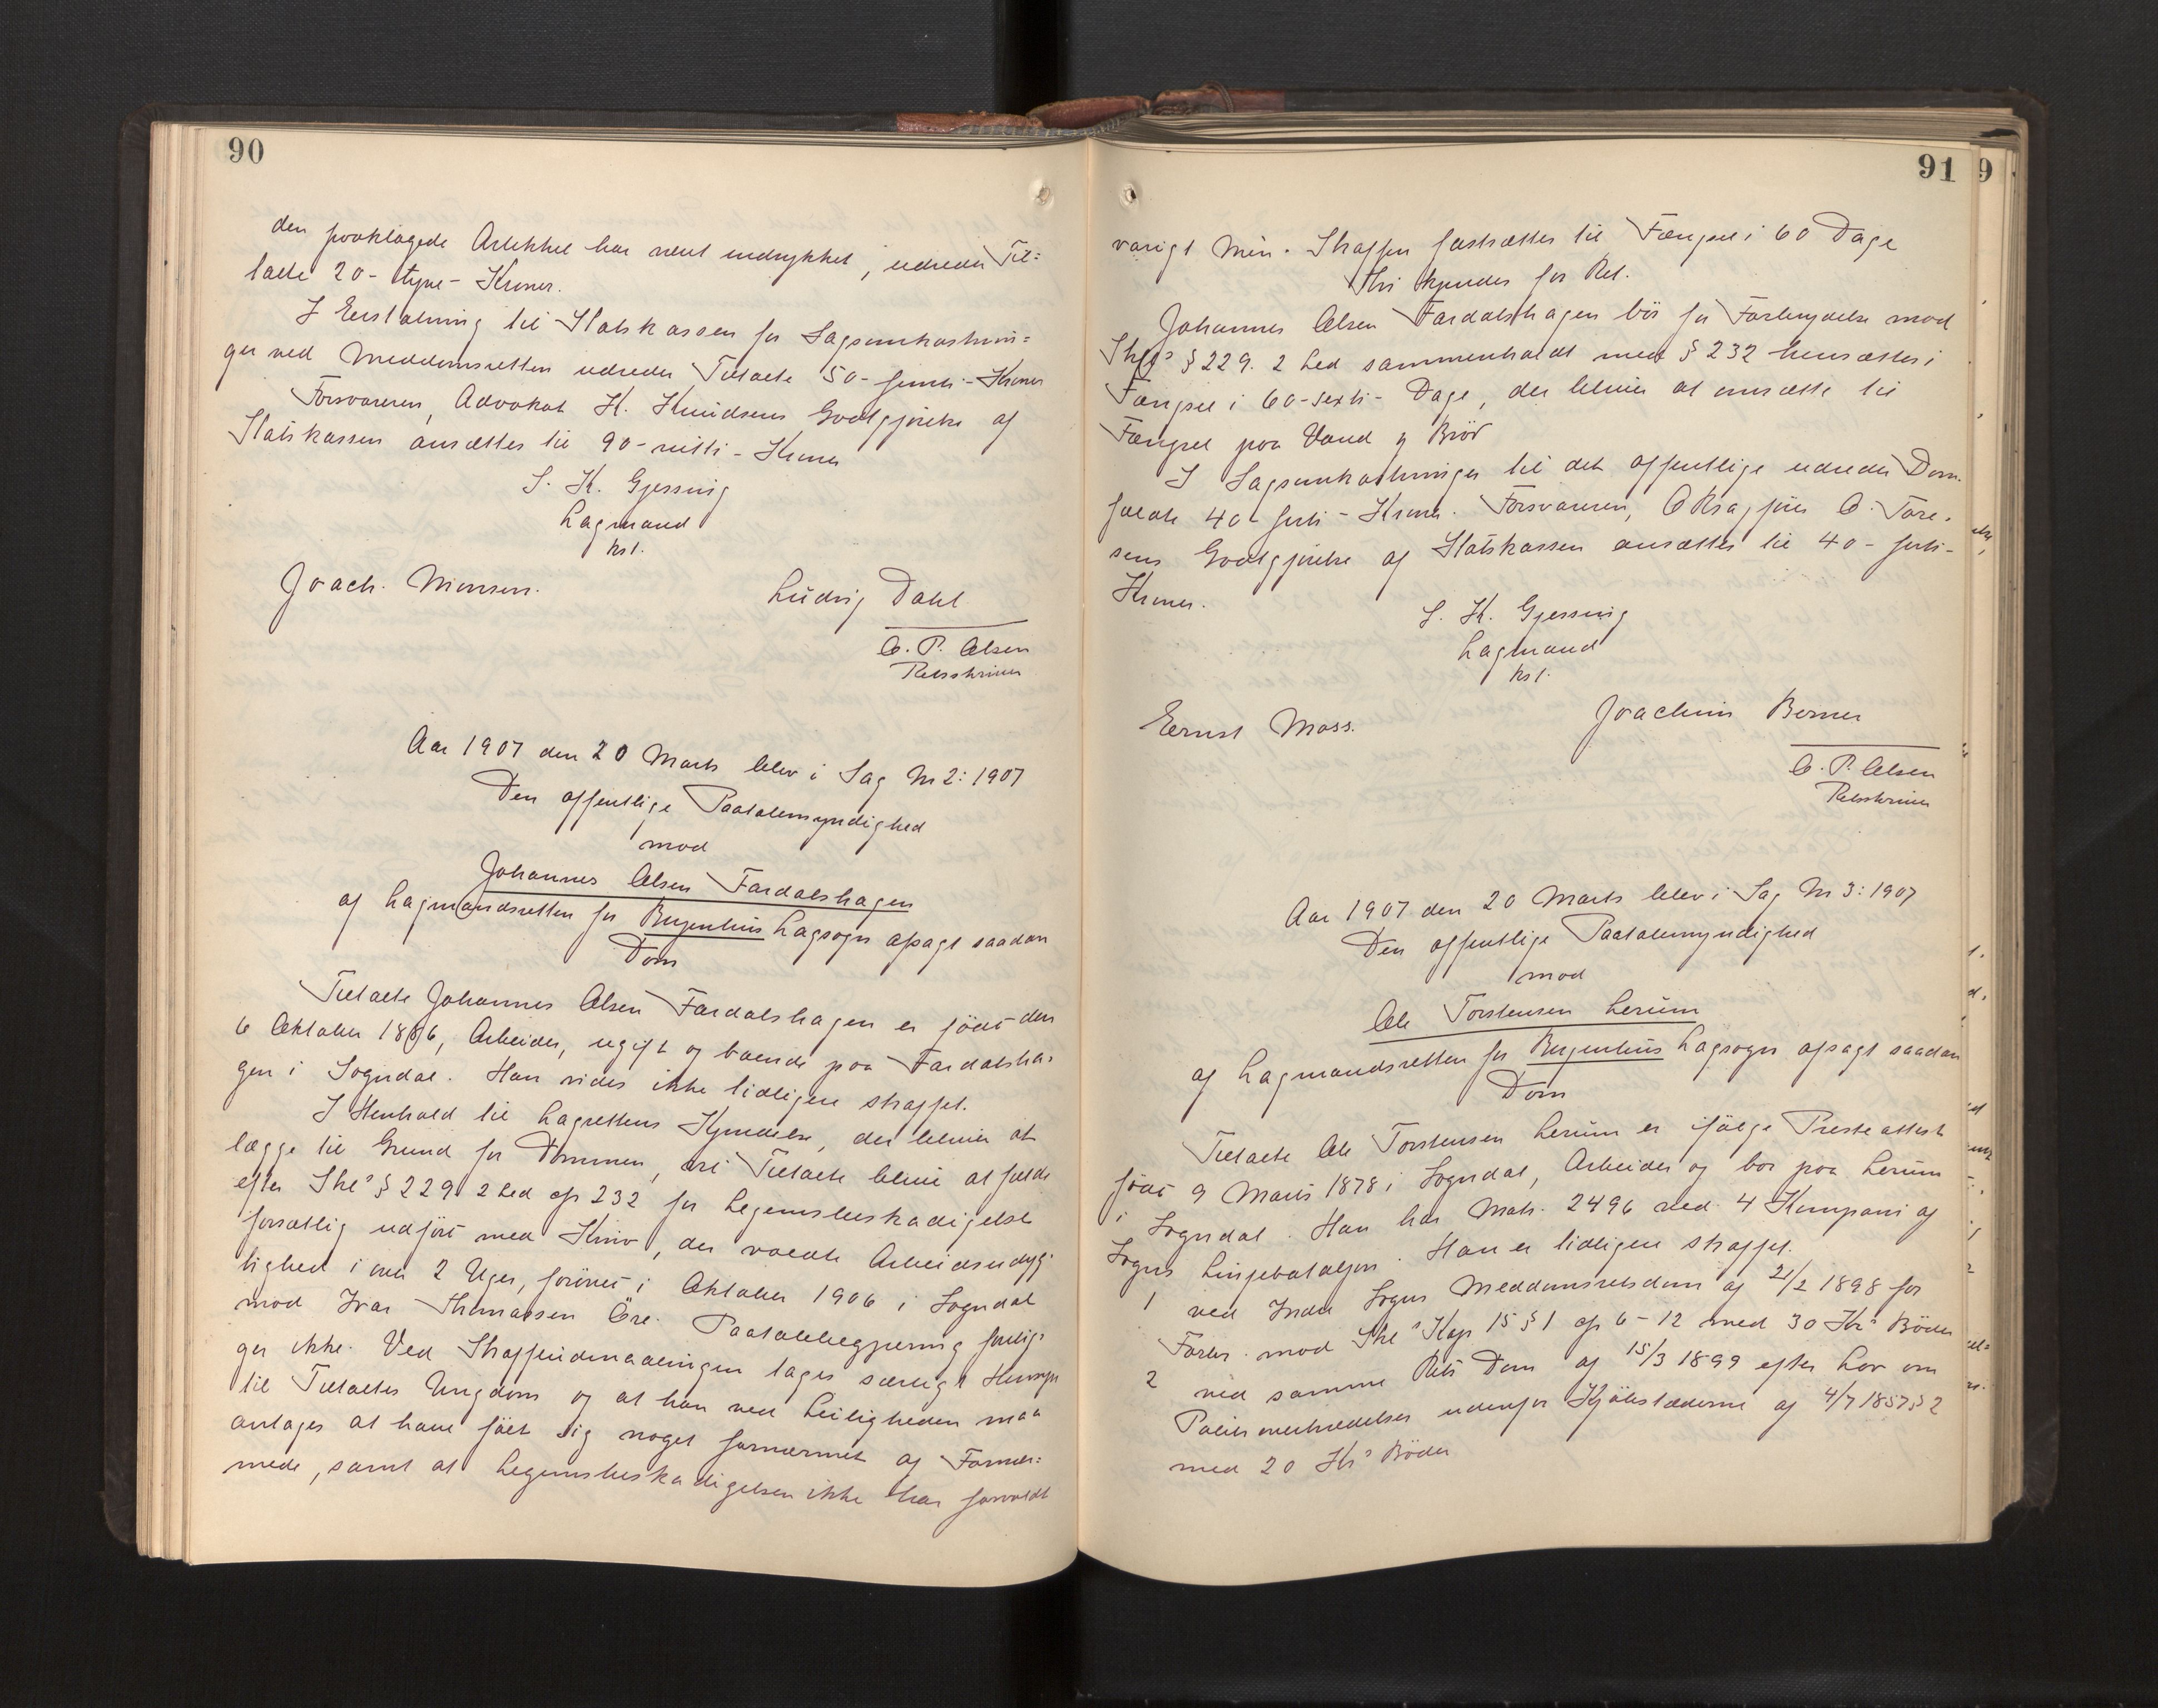 90
den paaklagede Artikkel har været indrykket, udreder Til=
talte 20 - tyve - Kroner.
I Erstatning til Statskassen for Sagsomkostnin=
ger ved Meddomsretten udreder Tiltalte 50 - femti - Kroner
Forsvareren, Advokat K. Knudsens Godtgjörelse af
Statskassen ansættes til 90 - nitti - Kroner
S. K. Gjessing
Lagmand
kst.
Joach. Monsen.
Ludvig Dahl
O. P. Olsen
Retsskriver
Aar 1907 den 20 Marts blev i Sag Nr 2: 1907
Den offentlige Paatalemyndighed
mod
Johannes Olsen Fardalshagen
af Lagmandsretten for Bergenhus Lagsogn afsagt saadan
Dom
Tiltalte Johannes Olsen Fardalshagen er födt den
6 Oktober 1886, Arbeider, ugift og boende paa Fardalsha=
gen i Sogndal. Han vides ikke tidligere straffet.
I Henhold til Lagrettens Kjendelse, der bliver at
lægge til Grund for Dommen, vil Tiltalte blive at fælde
efter Strl's § 229 2 Led cfr 232 for Legemsbeskadigelse
forsætlig udfört med Kniv, der voldte Arbeidsudyg=
tighed i over 2 Uger, forövet i Oktober 1906 i Sogndal
mod Ivar Thomassen Öre. Paatalebegjæring forelig=
ger ikke. Ved Straffeudmaalingen tages særligt Hensyn
til Tiltaltes Ungdom og at han ved Leiligheden maa
antages at have fölt sig noget fornærmet af Fornær=
mede, samt at Legemsbeskadigelsen ikke har forvoldt
91
varigt Mén. Straffen fastsættes til Fængsel i 60 Dage
Thi kjendes for Ret.
Johannes Olsen Fardalshagen bör for Forbrydelse mod
Strl's § 229. 2 Led sammenholdt med § 232 hensættes i
Fængsel i 60 - sexti - Dage, der bliver at omsætte til
Fængsel paa Vand og Bröd
I Sagsomkostninger til det offentlige udreder Dom=
fældte 40 - forti - Kroner. Forsvareren, ORsagförer O. Tore=
sens Godtgjörelse af Statskassen ansættes til 40 - forti -
Kroner.
S. K. Gjessing
Lagmand
kst.
Ernst Moss.
Joachim Berner
O. P. Olsen
Retsskriver
Aar 1907 den 20 Marts blev i Sag Nr 3: 1907
Den offentlige Paatalemyndighed
mod
Ole Torstensen Lerum
af Lagmandsretten for Bergenhus Lagsogn afsagt saadan
Dom
Tiltalte Ole Torstensen Lerum er ifölge Presteattest
födt 9 Marts 1878 i Sogndal, Arbeider og bor paa Lerum
i Sogndal. Han har Matr. 2496 ved 4 Kompani af
Sogns Linjebataljon. Han er tidligere straffet.
1 ved Indre Sogns Meddomsretsdom af 21/2 1898 for
Forbr. mod Strl's Kap 15 § 1 cfr 6 - 12 med 30 Kr's Böder
2 ved samme Rets Dom af 15/3 1899 efter Lov om
Politiovertrædelser udenfor Kjöbstæderne af 4/7 1857 § 2
med 20 Kr's Böder